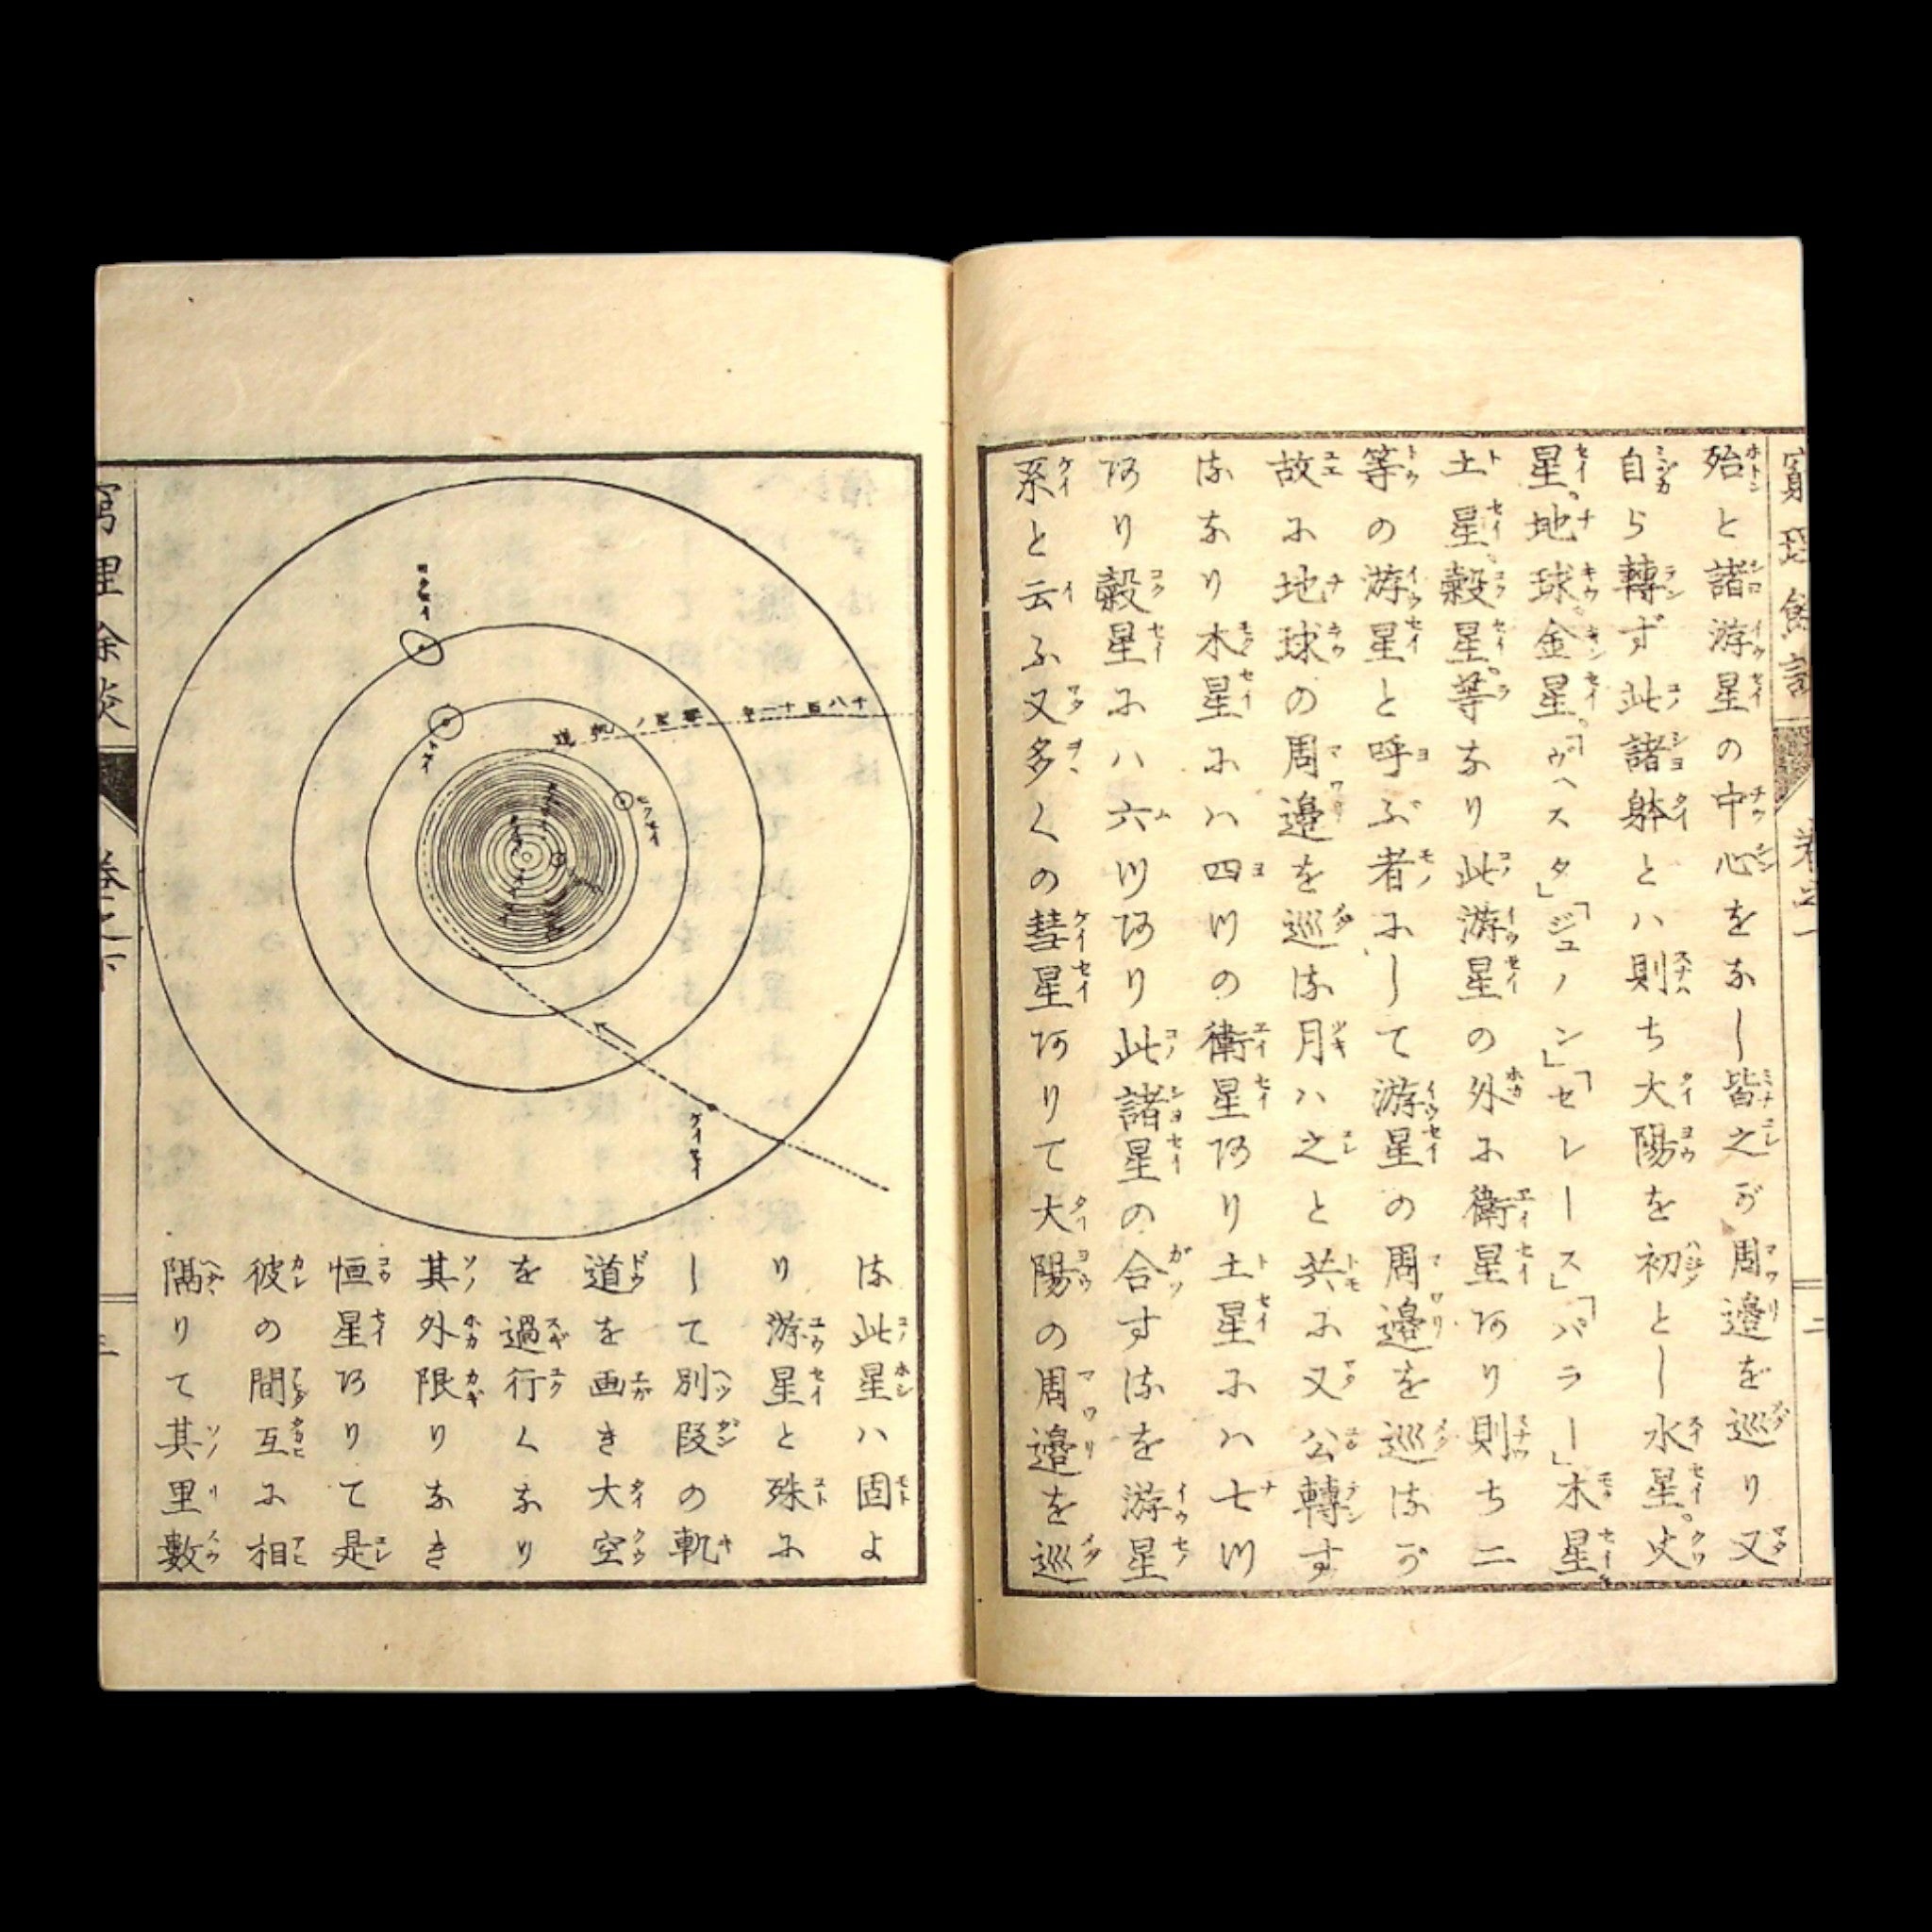 殆と諸游星の中心をなし皆之が周邉を巡り又
自ら轉ず此諸躰とハ則ち大陽を初とし水星。火
星。地球。金星。「ヴヘスタ」「ジュノン」「セレース」「パラー」木星
土星。穀星。等なり此游星の外に衛星あり則ち二
等の游星と呼ぶ者にして游星の周邉を巡るが
故に地球の周邉を巡る月ハ之と共に又公轉す
るなり木星にハ四ツの衛星あり土星にハ七ツ
あり穀星にハ六ツあり此諸星の合するを游星
系と云ふ又多くの彗星ありて大陽の周邉を巡
千八百十一年彗星ノ軌道
ケイセイ
る此星ハ固よ
り游星と殊に
して別段の軌
道を画き大空
を過行くなり
其外限りなき
恒星ありて是
彼の間互に相
隔りて其里數
窮理餘談
卷之一